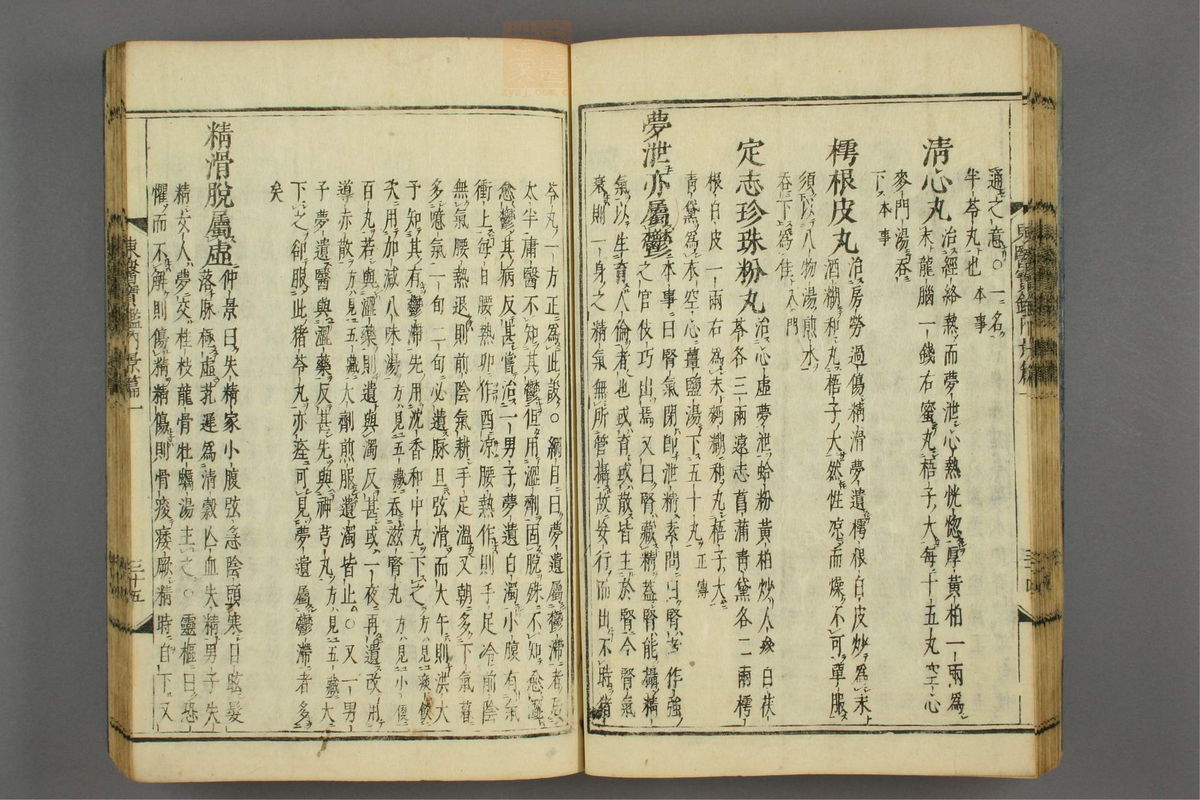 通之意○一名
半苓丸也本事
清心丸治經絡熱而夢泄心熱恍惚厚黃柏一兩爲
末龍腦一錢右蜜丸梧子大每十五丸空心
麥門湯呑
下本事
樗根皮丸治房勞過傷精滑夢遺樗根白皮炒爲末
酒糊和丸梧子大然性凉而燥不可單服
須以八物湯煎水
呑下爲佳入門
定志珍珠粉丸治心虛夢泄蛤粉黃柏炒人參白茯
苓各三兩遠志菖蒲靑黛各二兩樗
根白皮一兩右爲末麪糊和丸梧子大
靑黛爲衣空心薑鹽湯下五十丸正傳
夢泄亦屬鬱本事曰腎氣閉卽泄精素問曰腎者作強
之官伎巧出焉又曰腎藏精盖腎能攝精
氣以生育人倫者也或育或散皆主於腎今腎氣
衰則一身之精氣無所管攝故妄行而出不時猪
苓丸一方正爲此設○綱目曰夢遺屬鬱滯者居
太半庸醫不知其鬱但用澁劑固脫殊不知愈澁
愈鬱其病反甚嘗治一男子夢遺白濁小腹有氣
衝上每日腰熱卯作酉凉腰熱作則手足冷前陰
無氣腰熱退則前陰氣耕手足溫又朝多下氣暮
多噫氣一旬二旬必遺脉且弦滑而大午則洪大
予知其有鬱滯先用沈香和中丸下之方見痰飮
次用加減八味湯方見五藏呑滋腎丸方見小便
百丸若與澁藥則遺與濁反甚或一夜再遺改用
導赤散方見五藏大劑煎服遺濁皆止○又一男
子夢遺醫與澁藥反甚先與神芎丸方見五藏大
下之却服此猪苓丸亦痊可見夢遺屬鬱滯者多
矣
精滑脫屬虛仲景曰失精家小腹弦急陰頭寒目眩髮
落脉極虛芤遲爲淸穀亾血失精男子失
精女人夢交桂枝龍骨牡蠣湯主之○靈樞曰恐
懼而不解則傷精精傷則骨痠痿厥精時自下又
東醫寶鑑內景篇一
三十四
東醫寶鑑內景篇一
三十五